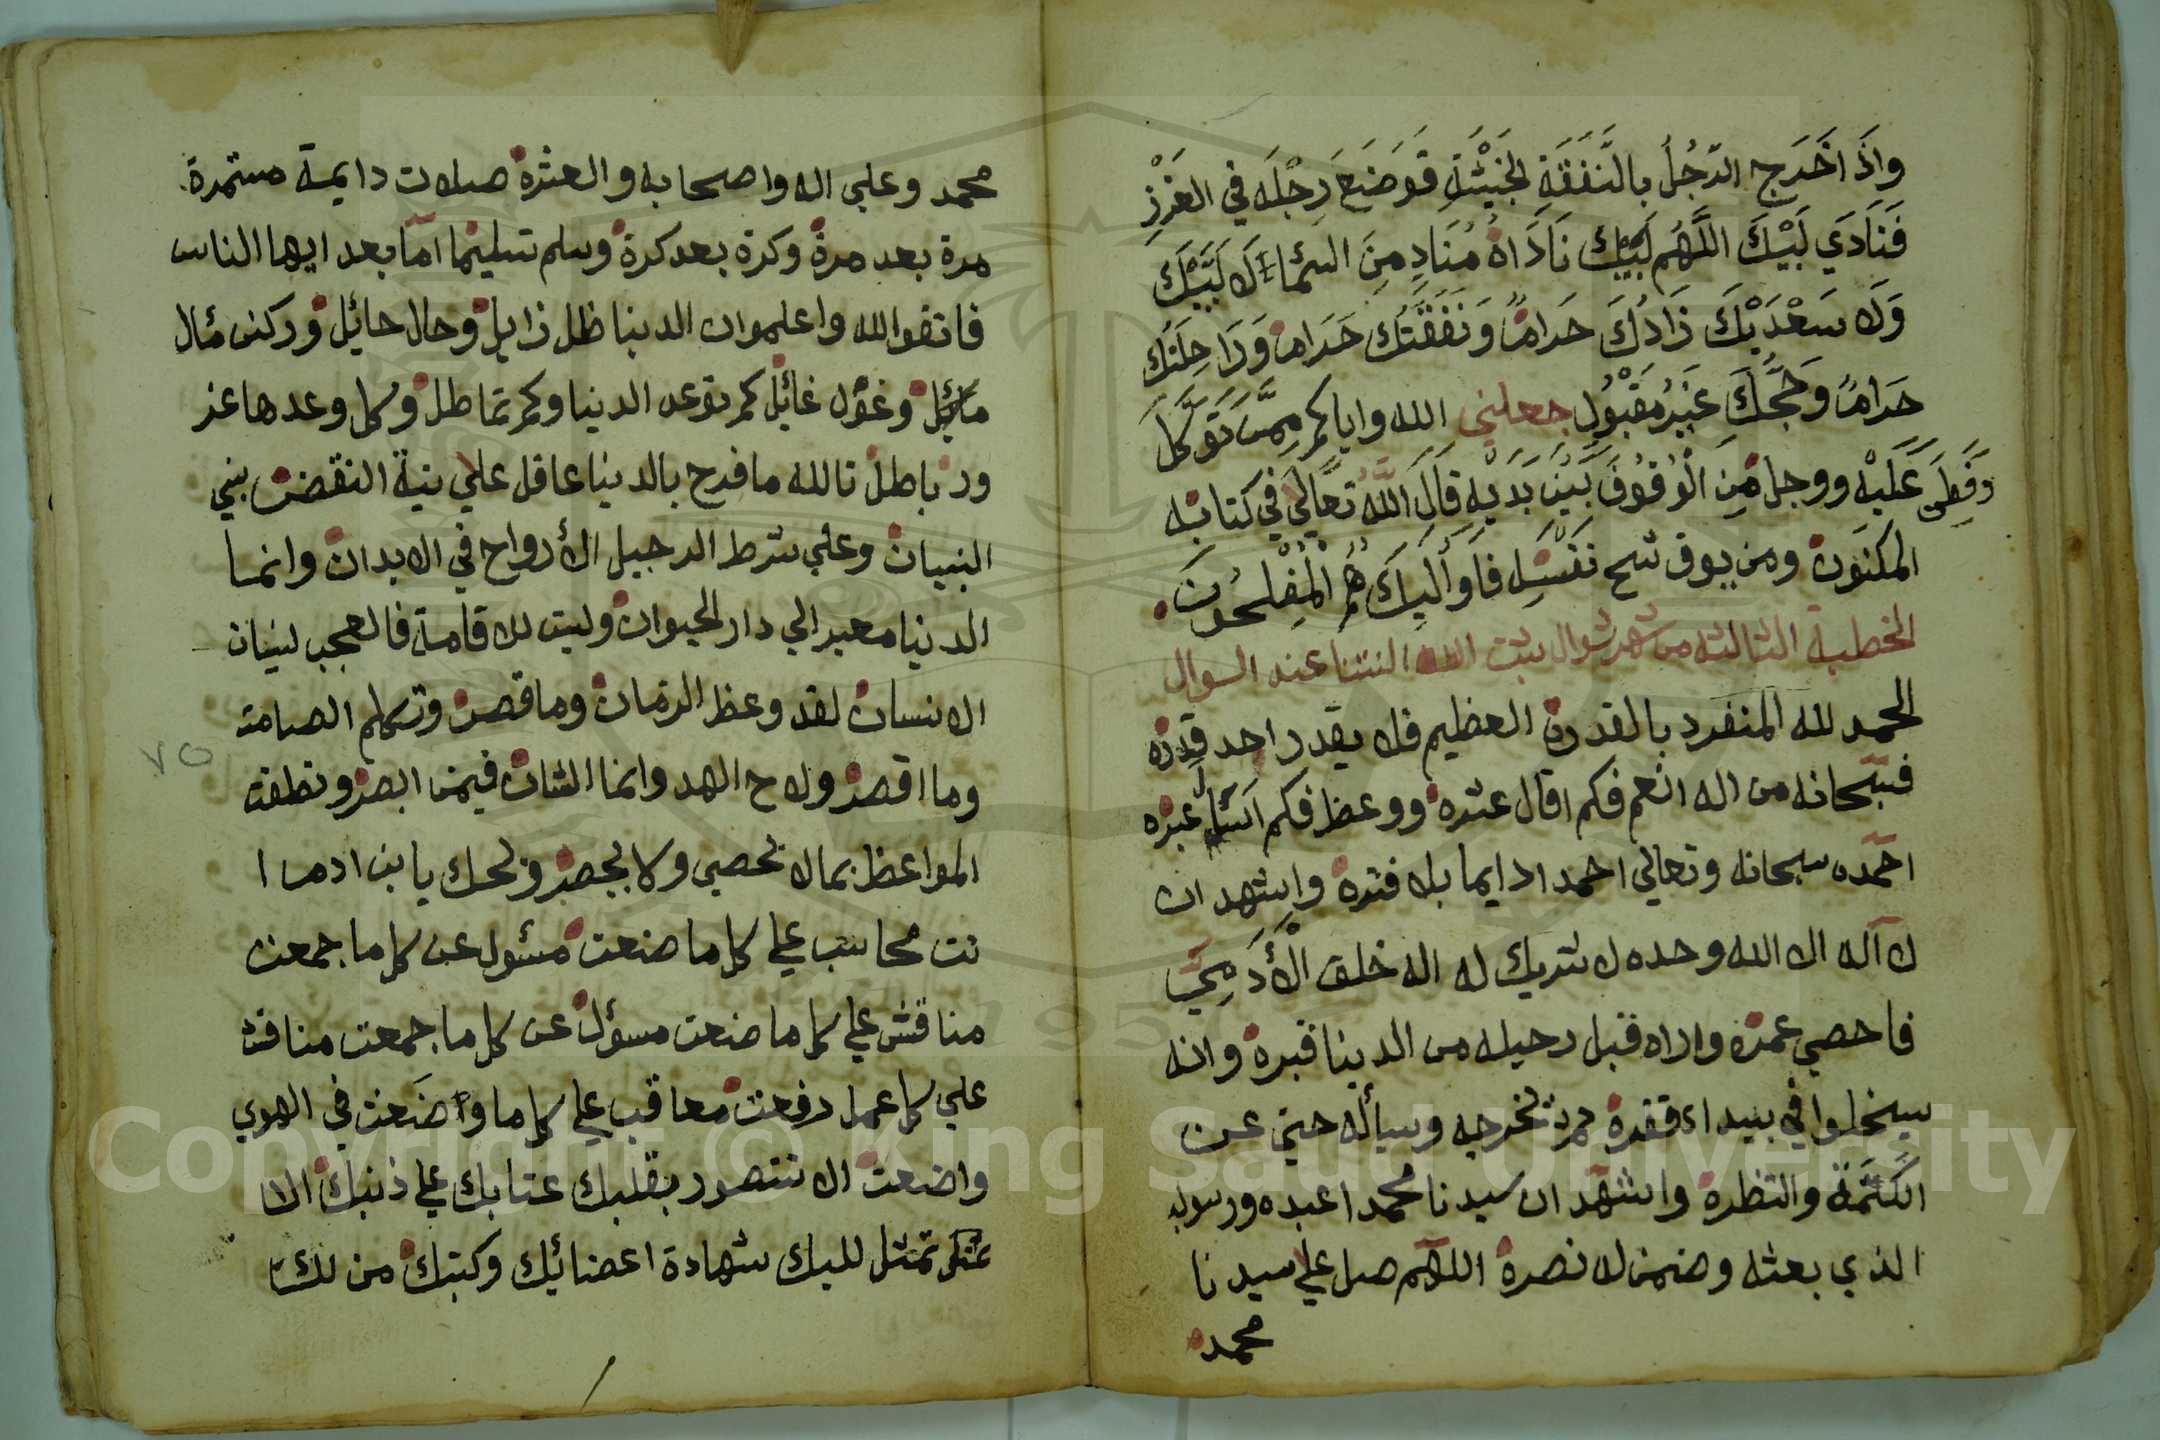 واِذَا خَرَج الرّجُلُ بالنَّفَقَةِ الخَبِيْثَةِ فَوَضَعَ رِجْلَه في الغَرْزِ
فَنَادَي لَبَّيْكَ اللَّهُم لَبَّيْكَ نَادَاهُ مُنَادٍ مِنَ السَّمَاءِ لَا لَبَّيْكَ
وَلَا سَعْدَيْكَ زَادُكَ حَرَامٌ وَنَفَقَتُكَ حَرَامٌ وَرَاحِلَتُكَ
حَرَامٌ وَحَجُّكَ غَيْرُ مَقْبُولٍ جعلني الله واياكم مِمَّنْ تَوَكَّلَ
عَلَيْه ووجل مِنَ الْوُقُوفِ بَيْنَ يَدَيْهِ قَالَ اللَّهُ تَعَالَي في كتابه
المكنون ومن يوق شح نَفْسِهِ فَأُولَئِكَ هُمُ الْمُفْلِحُونَ
الخطبة الثالثه من شهر شوال يثبت الله السنتنا عند السوال
الحمد لله المنفرد بالقدرة العظيم فلا يقدر احد قدره
فسبحانه من اله انعم فكم اقال عثره ووعظ فكم اسَبَل عبره
احمّده سبحانه وتعالي احمدا دايما بلا فتره واشهد ان
لا اله الا الله وحده لا شريك له اله خلق الْأَدَمِيَّ
فاحصي عمره واراه قبل رحيله من الدينا قبره وانه
سيخلوا في بيداء قفره ثم يخرجه ويسأله حتي عن
الكَتمَة والنظره واشهّد ان سيدنا محمدا عبده ورسوله
الذي بعثه وضمن له نصره اللهّم صل علي سيدنا
محمد
محمد وعلي اله واصحابه والعتره صلات دايمة مستمرة
مرة بعد مرة وكرة بعد كرة وسلم تسليما امّا بعد ايها الناس
فاتقوا الله واعلموا ان الدينا ظل زايل وحال حائل وركن مال
مائل وغول غائل كم توعد الدينا وكم تماطل وكل وعدها غر
ور باطل تالله ما فرح بالدينا عاقل علي بنية النقض بني
البنيان وعلي شرط الرحيل الأرواح في الابدان وانما
الدنيا معبر الي دار الحيوان وليت للاقامة فالعجب لنسيان
الانسان لقد وعظ الزمان وما قصر وتكلم الصامت
وما اقصر ولاح الهد وانما الشان فيمن ابصر ونطقت
المواعظ بمالا يحصي ولا يحصر ويحك يابن ادم ا
نت محاسب علي كل ما صنعت مسئول عن كل ما جمعت
مناقش علي كل ما صنعت مسؤل عن كل ما جمعت مناقش
علي كل عمل رفعت معاقب علي كل ما واضعت في الهوي
واضعت الا تتصور بقلبك عتابك علي ذنبك الا
تمثل للبك شهادة اعضائك وكتبك من لك
٧٥